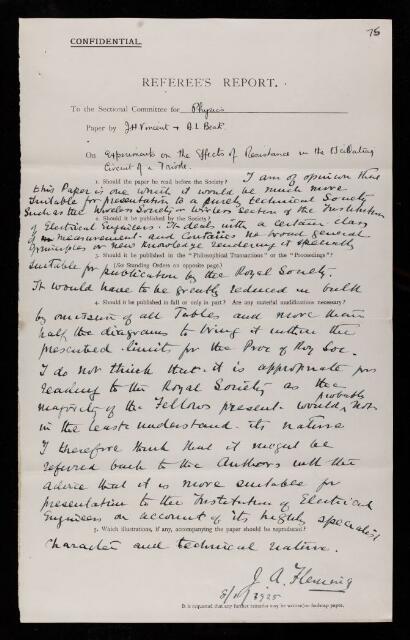 75
CONFIDENTIAL.
REFEREE'S REPORT.
To the Sectional Committee for Physics
Paper by J H Vincent + A L Beak
On Experiments on the Effects of Resistance in the Oscillating
Circuit of a Triode.
1. Should the paper be read before the Society? I am of opinion that
this Paper is one which it would be much more
suitable for presentation to a purely technical Society
such as the Wireless Society or Wireless Section of the Institution
2. Should it be published by the Society?
of Electrical Engineers. It deals with a certain class
of measurement and contains no broad general
principles or new knowledge rendering it specially
3. Should it be published in the "Philosophical Transactions" or the "Proceedings"?
(See Standing Orders on opposite page.)
suitable for publication by the Royal Society.
It would have to be greatly reduced in bulk
4. Should it be published in full or only in part? Are any material modifications necessary?
by omission of all Tables and more than
half the diagrams to bring it within the
prescribed limit for the Proc of Roy Soc.
I do not think that it is appropriate for
reading to the Royal Society as the
majority of the Fellows present would probably not
in the least understand its nature
I therefore think that it might be
referred back to the Authors with the
advice that it is more suitable for
presentation to the Institution of Electrical
Engineers on account of its highly specialist
5. Which illustrations, if any, accompanying the paper should be reproduced?
character and technical nature.
J. A. Fleming
1925
It is requested that any further remarks may be written on foolscap paper.